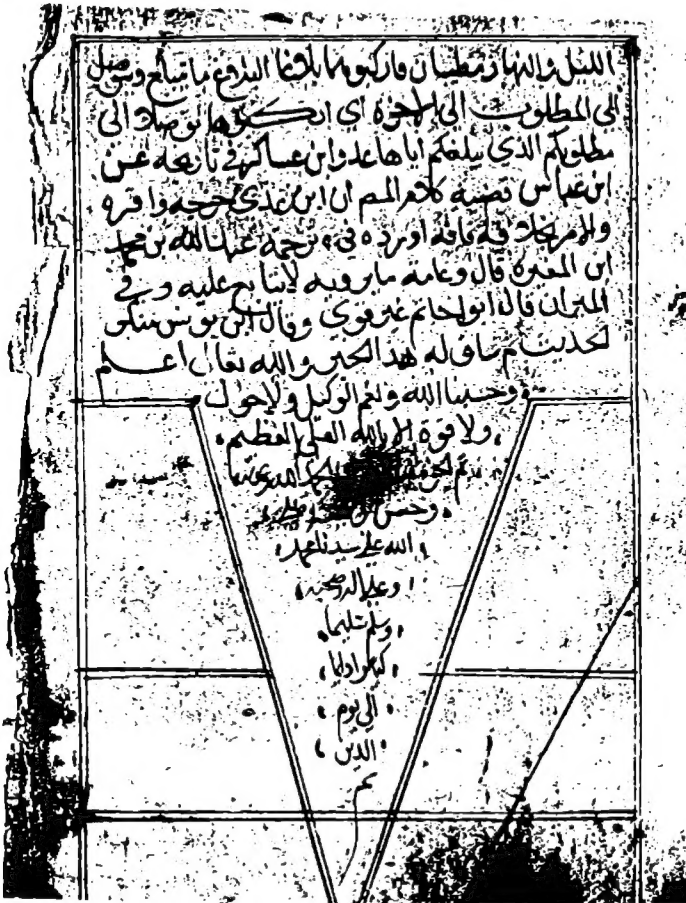 الليل والنهار مطيتان فاركبوهما بلاغا الى
الى المطلوب الى الاخرة اي اركبوها توصلا الى
مطلوبكم الذي يبلغكم اياها عد وابن عساكر في تاريخه عن
ابن عباس قضية كلام المص ان ابن عدي خرجه واقره
والامر بخلافه فانه اورده في ترجمة عبد الله بن محمد
ابن المغيرة قال وعامة ما يرويه لا يتابع عليه وفي
الميزان قال ابو حاتم غير قوي وقال ابن يونس منكر
الحديث ثم ساق له هذا الخبر والله تعالى اعلم
وحسبنا الله ونعم الوكيل ولا حول
ولا قوة الا بالله العلي العظيم
تم الحمد لله
وحسن
الله على سيدنا محمد
وعلى اله وصحبه
وسلم تسليما
كثيرا دائما
الى يوم
الدين
تم